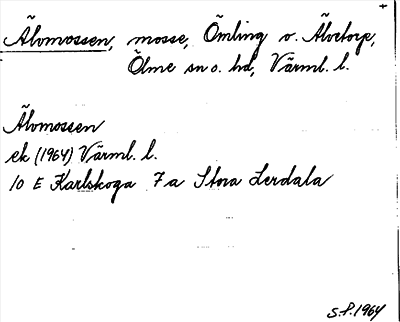 Älvmossen, mosse, Ömling o. Älvetorp,
Ölme sn o. hd, Värml. l.
Älvmossen
ek (1964) Värml. l.
10 E Karlskoga 7a Stora Lerdala
S.P. 1964